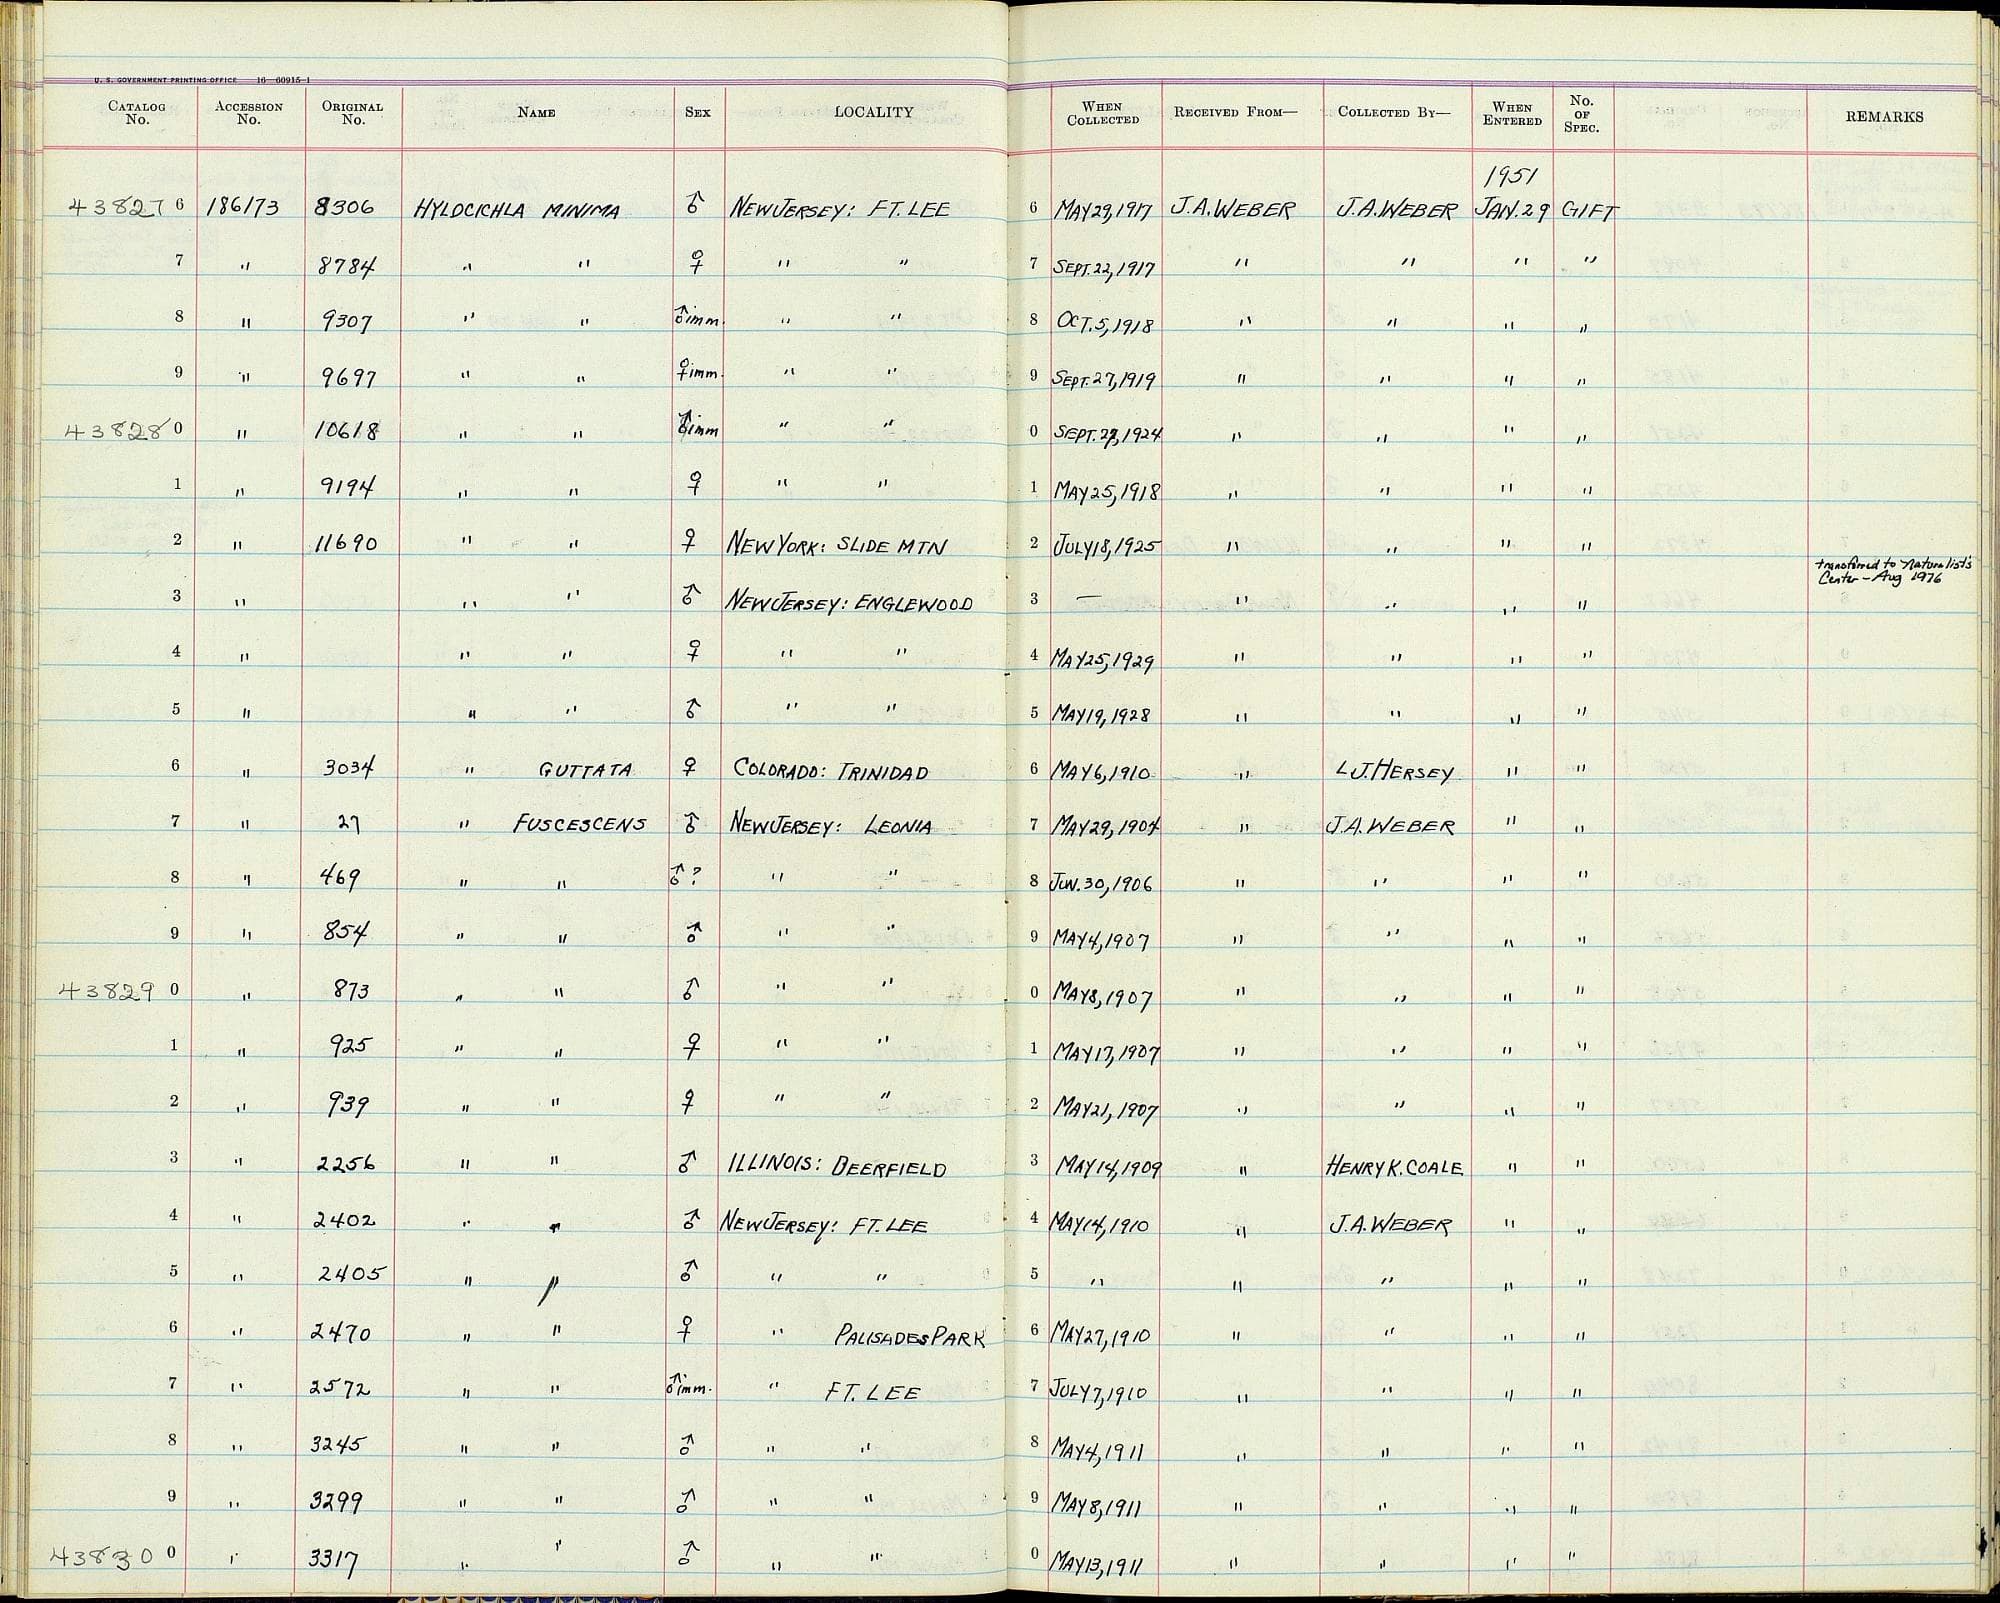 U. S. GOVERNMENT PRINTING OFFICE 16—60915-1
CATALOG No. ACCESSION No. ORIGINAL No. NAME SEX LOCALITY WHEN COLLECTED RECEIVED FROM— COLLECTED BY— WHEN ENTERED No. OF SPEC. REMARKS
1951
43827 6 186173 8306 HYLOCICHLA MINIMA ♂ NEW JERSEY: FT. LEE 6 MAY 29, 1917 J.A. WEBER J.A. WEBER JAN. 29 GIFT
7 " 8784 " " ♀ " " 7 SEPT. 22, 1917 " " " "
8 " 9307 " " ♂ imm. " " 8 OCT. 5, 1918 " " " "
9 " 9697 " " ♀ imm. " " 9 SEPT. 27, 1919 " " " "
43828 0 " 10618 " " ♂ imm " " 0 SEPT. 27, 1924 " " " "
1 " 9194 " " ♀ " " 1 MAY 25, 1918 " " " "
2 " 11690 " " ♀ NEW YORK: SLIDE MTN 2 JULY 18, 1925 " " " "
transferred to Naturalist's
Center - Aug 1976
3 " " " ♂ NEW JERSEY: ENGLEWOOD 3 — " " " "
4 " " " ♀ " " 4 MAY 25, 1929 " " " "
5 " " " ♂ " " 5 MAY 19, 1928 " " " "
6 " 3034 " GUTTATA ♀ COLORADO: TRINIDAD 6 MAY 6, 1910 " L.J. HERSEY " "
7 " 27 " FUSCESCENS ♂ NEW JERSEY: LEONIA 7 MAY 29, 1904 " J.A. WEBER " "
8 " 469 " " ♂? " " 8 JUN. 30, 1906 " " " "
9 " 854 " " ♂ " " 9 MAY 4, 1907 " " " "
43829 0 " 873 " " ♂ " " 0 MAY 8, 1907 " " " "
1 " 925 " " ♀ " " 1 MAY 17, 1907 " " " "
2 " 939 " " ♀ " " 2 MAY 21, 1907 " " " "
3 " 2256 " " ♂ ILLINOIS: DEERFIELD 3 MAY 14, 1909 " HENRY K. COALE " "
4 " 2402 " " ♂ NEW JERSEY: FT. LEE 4 MAY 14, 1910 " J.A. WEBER " "
5 " 2405 " " ♂ " " 5 " " " " "
6 " 2470 " " ♀ " PALISADES PARK 6 MAY 27, 1910 " " " "
7 " 2572 " " ♂ imm. " FT. LEE 7 JULY 7, 1910 " " " "
8 " 3245 " " ♂ " " 8 MAY 4, 1911 " " " "
9 " 3299 " " ♂ " " 9 MAY 8, 1911 " " " "
43830 0 " 3317 " " ♂ " " 0 MAY 13, 1911 " " " "